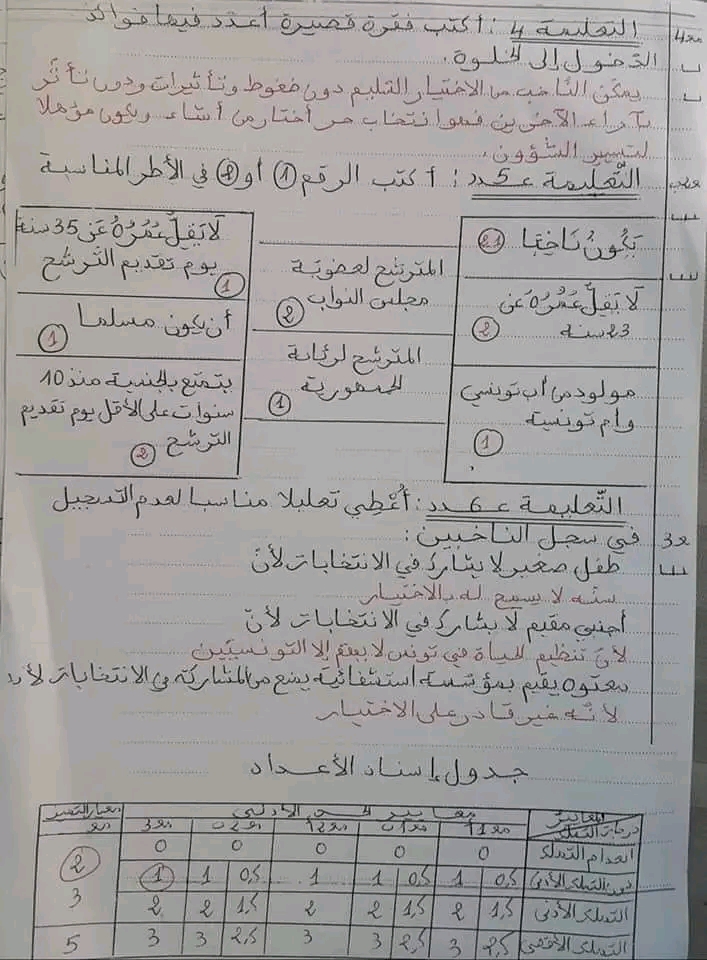 التعليمة 4 : أكتب فقرة قصيرة أعدد فيها فوائد
مع4
الدخول إلى الخلوة.
يمكن الناخب من الاختيار السليم دون ضغوط وتأثيرات ودون تأثر
بآراء الآخرين فهو انتخاب حر أختار من أشاء ويكون مؤهلا
لتسيير الشؤون.
التّعليمة عـ5ـدد : أكتب الرقم 1 أو 2 في الأطر المناسبة
يَكُونُ نَاخِبًا 2 1
لَا يَقِلُّ عُمُرُهُ عَن
23 سنة 2
مولود من أب تونسي
وأم تونسية 1
المترشح لعضوية
مجلس النواب 2
المترشح لرئاسة
الجمهورية 1
لَا يَقِلُّ عُمُرُهُ عَن 35 سنة
يوم تقديم الترشح 1
أن يكون مسلما 1
يتمتع بالجنسية منذ 10
سنوات على الأقل يوم تقديم
الترشح 2
التّعليمة عـ6ـدد : أُعْطِي تعليلا مناسبا لعدم التسجيل
في سجل الناخبين :
مع3
طفل صغير لا يشارك في الانتخابات لأنّ
سنّه لا يسمح له بالاختيار
أجنبي مقيم لا يشارك في الانتخابات لأنّ
لأنّ تنظيم الحياة في تونس لا يهم إلا التونسيّين
معتوه يقيم بمؤسسة استشفائية يمنع من المشاركة في الانتخابات لأنه
لأنّه غير قادر على الاختيار
جدول إسناد الأعداد
المعايير
درجات التملك
معايير الحد الأدنى
معيار التميز
مع3
انعدام التملك 0 0 0 0 0
دون التملك الأدنى 0,5 1 0,5 1 1 0,5 1 1 2
التملك الأدنى 1,5 2 1,5 2 2 1,5 2 2 3
التملك الأقصى 2,5 3 2,5 3 3 2,5 3 3 5